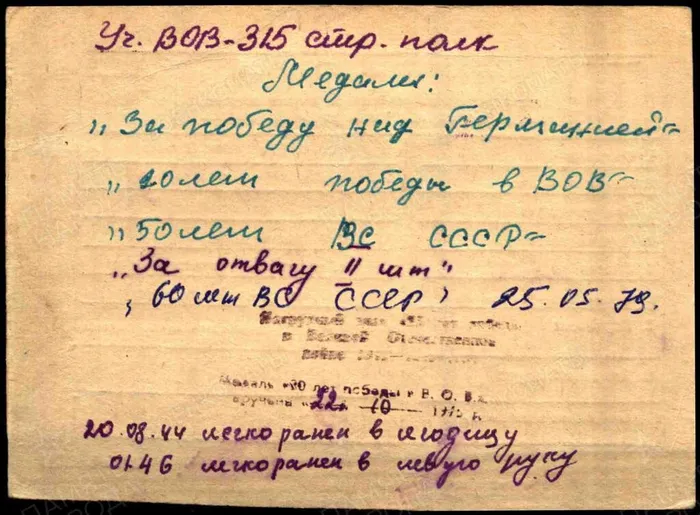 Уч. ВОВ-315 стр. полк
Медали:
„За победу над Германией"
„20 лет победы в ВОВ"
„50 лет ВС СССР"
„За отвагу II шт"
„60 лет ВС СССР" 25.05.79.
Нагрудный знак «25 лет победы
в Великой Отечественной
войне
Медаль «30 лет победы в В. О. В.»
вручена «22» 10 1975 г.
20.08.44 легко ранен в ягодицу
01.46 легко ранен в левую руку